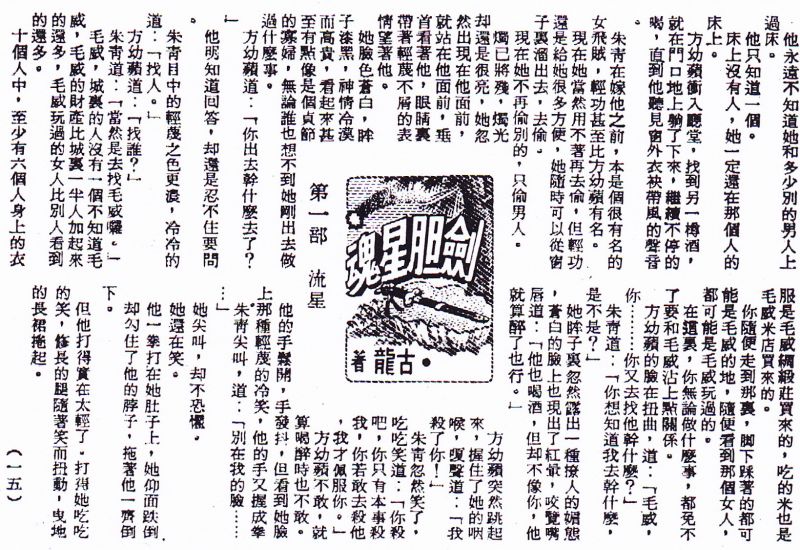 他永遠不知道她和多少別的男人上
過床。
他只知道一個。
床上沒有人，她一定還在那個人的
床上。
方幼蘋衝入廳堂，找到另一樽酒，
就在門口地上躺了下來，繼續不停的
喝，直到他聽見窗外衣袂帶風的聲音
。
朱青在嫁他之前，本是個很有名的
女飛賊，輕功甚至比方幼蘋有名。
現在她當然用不著再去偷，但輕功
還是給她很多方便，她隨時可以從窗
子裏溜出去，去偷。
現在她不再偷別的，只偷男人。
燭已將殘，燭光
却還是很亮，她忽
然出現在他面前，
就站在他面前，垂
首看著他，眼睛裏
帶著輕蔑不屑的表
情望著他。
她臉色蒼白，眸
子漆黑，神情冷漠
而高貴，看起來甚
至有點像是個貞節
的寡婦，無論誰也想不到她剛出去做
過什麼事。
方幼蘋道：「你出去幹什麼去了？
」
他明知道回答，却還是忍不住要問
。
朱青目中的輕蔑之色更濃，冷冷的
道：「找人。」
方幼蘋道：「找誰？」
朱青道：「當然是去找毛威囉。」
毛威，城裏的人沒有一個不知道毛
威，毛威的財產比城裏一半人加起來
的還多，毛威玩過的女人比別人看到
的還多。
十個人中，至少有六個人身上的衣
劍胆星魂
•古龍 著
第一部 流星
服是毛威綢緞莊買來的，吃的米也是
毛威米店買來的。
你隨便走到那裏，脚下踩著的都可
能是毛威的地，隨便看到那個女人，
都可能是毛威玩過的。
在這裏，你無論做什麼事，都免不
了要和毛威沾上點關係。
方幼蘋的臉在扭曲，道：「毛威，
你……你又去找他幹什麼？」
朱青道：「你想知道我去幹什麼，
是不是？」
她眸子裏忽然露出一種撩人的媚態
，蒼白的臉上也現出了紅暈，咬著嘴
唇道：「他也喝酒，但却不像你，他
就算醉了也行。」
方幼蘋突然跳起
來，握住了她的咽
喉，嗄聲道：「我
殺了你！」
朱青忽然笑了，
吃吃笑道：「你殺
吧，你只有本事殺
我，你若敢去殺他
，我才佩服你。」
方幼蘋不敢，就
算喝醉時也不敢。
他的手鬆開，手發抖，但看到她臉
上那種輕蔑的冷笑，他的手又握成拳
朱青尖叫，道：「別在我的臉……
…」
她尖叫，却不恐懼。
她還在笑。
他一拳打在她肚子上，她仰面跌倒
却勾住了他的脖子，拖著他一齊倒
下。
但他打得實在太輕了。打得她吃吃
的笑，修長的腿隨著笑而扭動，曳地
的長裙捲起。
（一五）